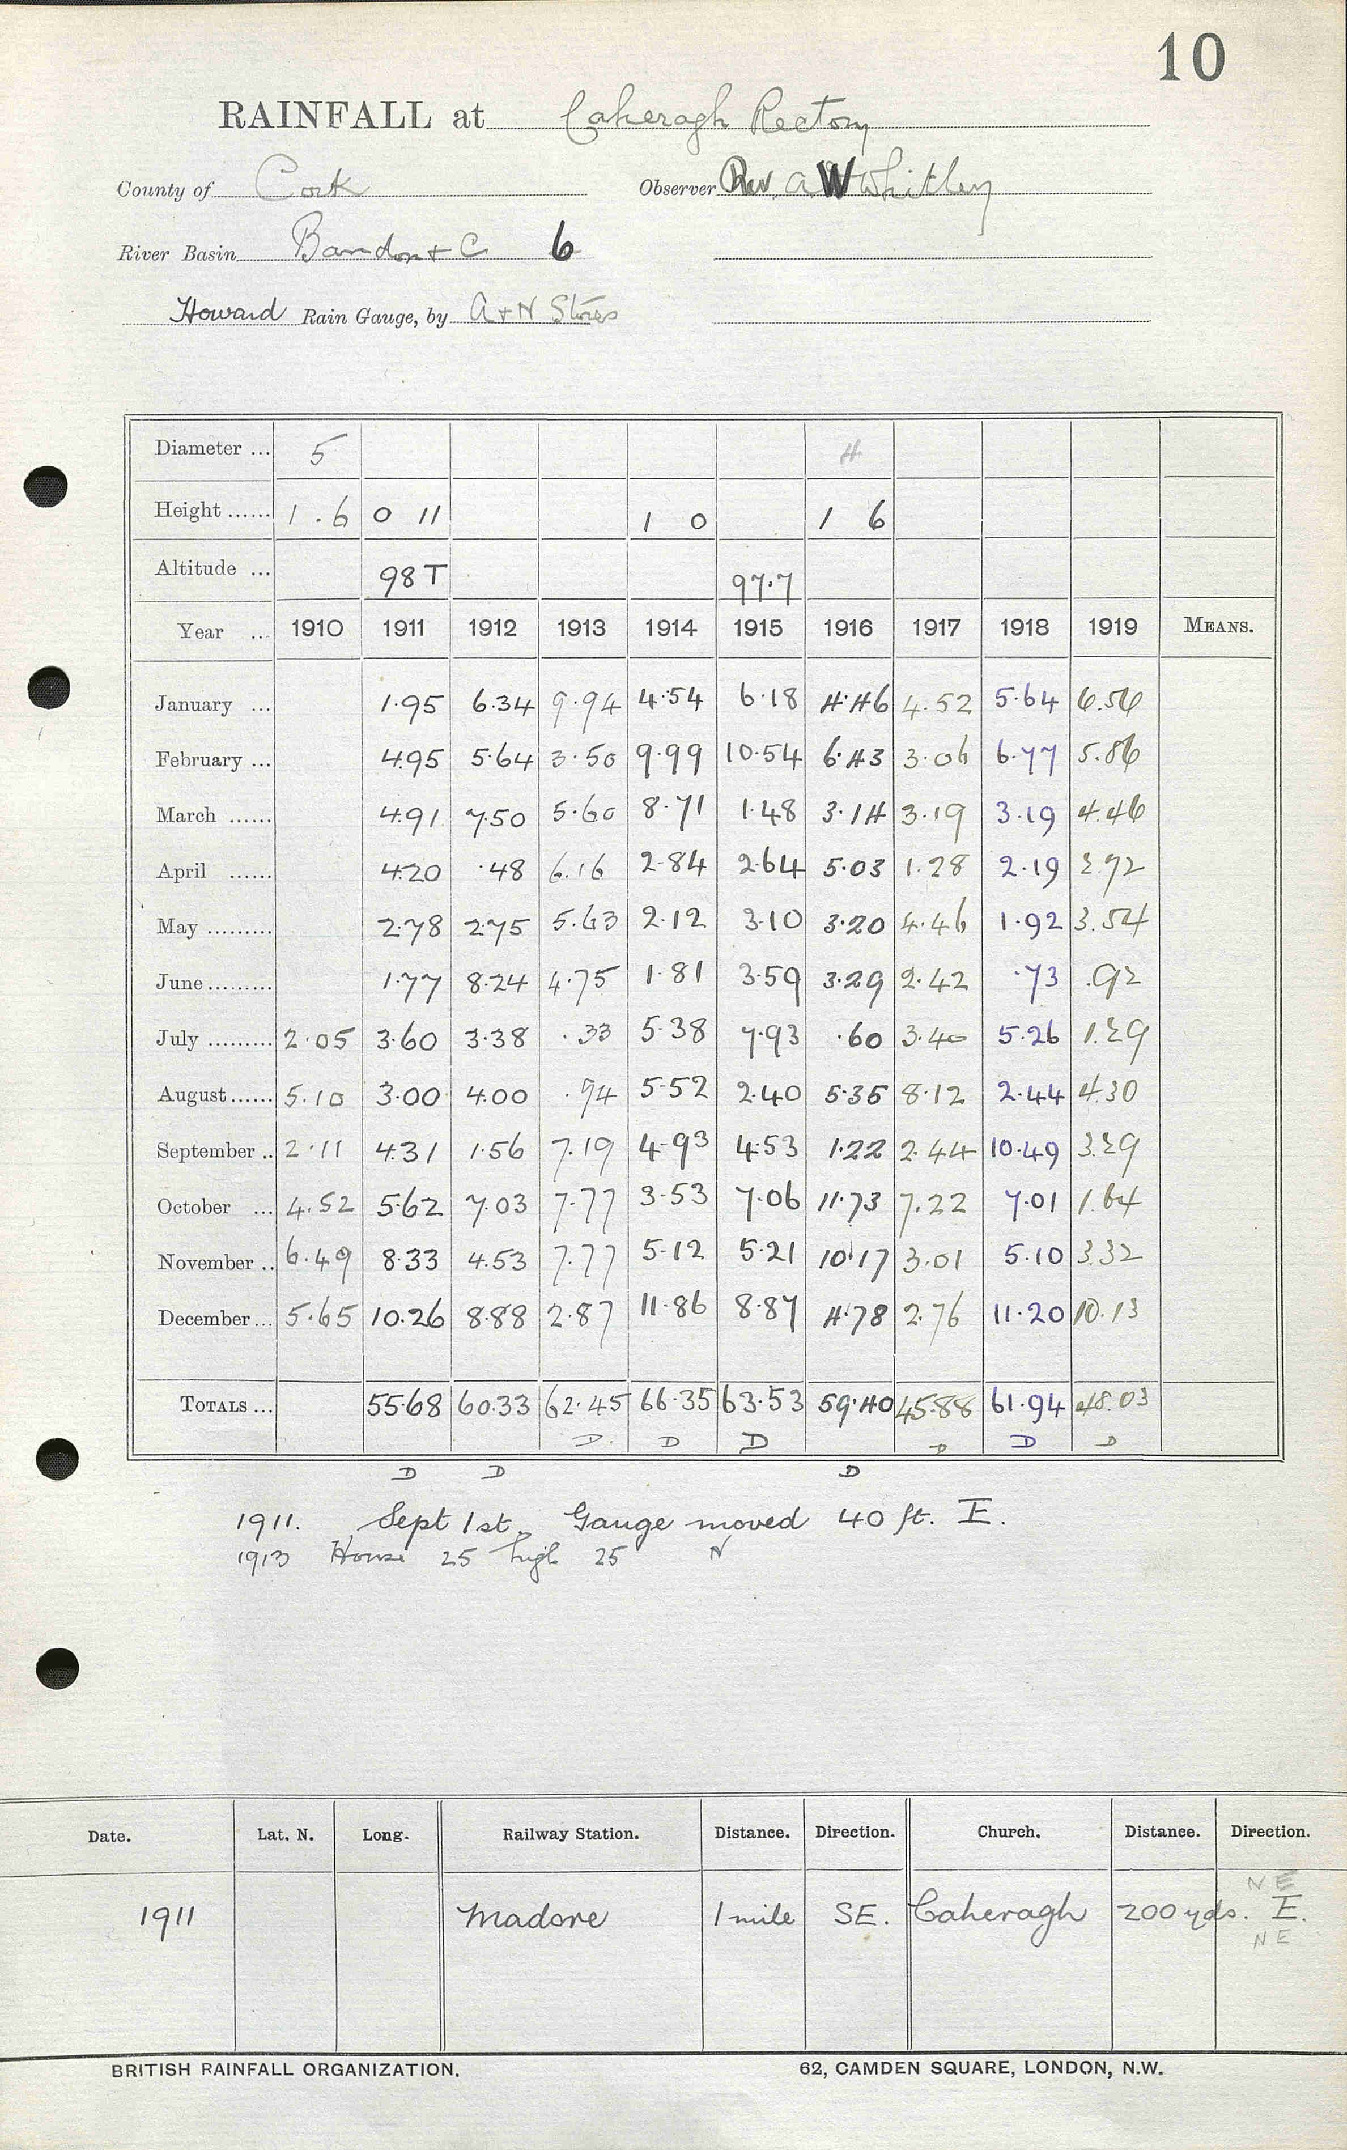 10
RAINFALL at Caheragh Rectory
County of Cork Observer Rev. A W Whitley
River Basin Bandon + C 6
Howard Rain Gauge, by A + N Stores
Diameter ... 5 4
Height ...... 1 . 6 0 11 1 0 1 6
Altitude ... 98 T 97.7
Year ... 1910 1911 1912 1913 1914 1915 1916 1917 1918 1919 MEANS.
January ... 1.95 6.34 9.94 4.54 6.18 4.46 4.52 5.64 6.56
February ... 4.95 5.64 3.50 9.99 10.54 6.43 3.06 6.77 5.86
March ...... 4.91 7.50 5.60 8.71 1.48 3.14 3.19 3.19 4.46
April ...... 4.20 .48 6.16 2.84 2.64 5.03 1.28 2.19 2.72
May ......... 2.78 2.75 5.63 2.12 3.10 3.20 4.46 1.92 3.54
June ......... 1.77 8.24 4.75 1.81 3.59 3.29 2.42 .73 .92
July ......... 2.05 3.60 3.38 .33 5.38 7.93 .60 3.40 5.26 1.29
August ...... 5.10 3.00 4.00 .94 5.52 2.40 5.35 8.12 2.44 4.30
September .. 2.11 4.31 1.56 7.19 4.93 4.53 1.22 2.44 10.49 3.29
October ... 4.52 5.62 7.03 7.77 3.53 7.06 11.73 7.22 7.01 1.64
November .. 6.49 8.33 4.53 7.77 5.12 5.21 10.17 3.01 5.10 3.32
December ... 5.65 10.26 8.88 2.87 11.86 8.87 4.78 2.76 11.20 10.13
TOTALS ... 55.68 60.33 62.45 66.35 63.53 59.40 45.88 61.94 48.03
D. D D D D D
D D D
1911. Sept 1st. Gauge moved 40 ft. E.
1913 House 25 high 25 N
Date. Lat. N. Long. Railway Station. Distance. Direction. Church. Distance. Direction.
N E
1911 Madore 1 mile SE. Caheragh 200 yds. E.
N E
BRITISH RAINFALL ORGANIZATION. 62, CAMDEN SQUARE, LONDON, N.W.